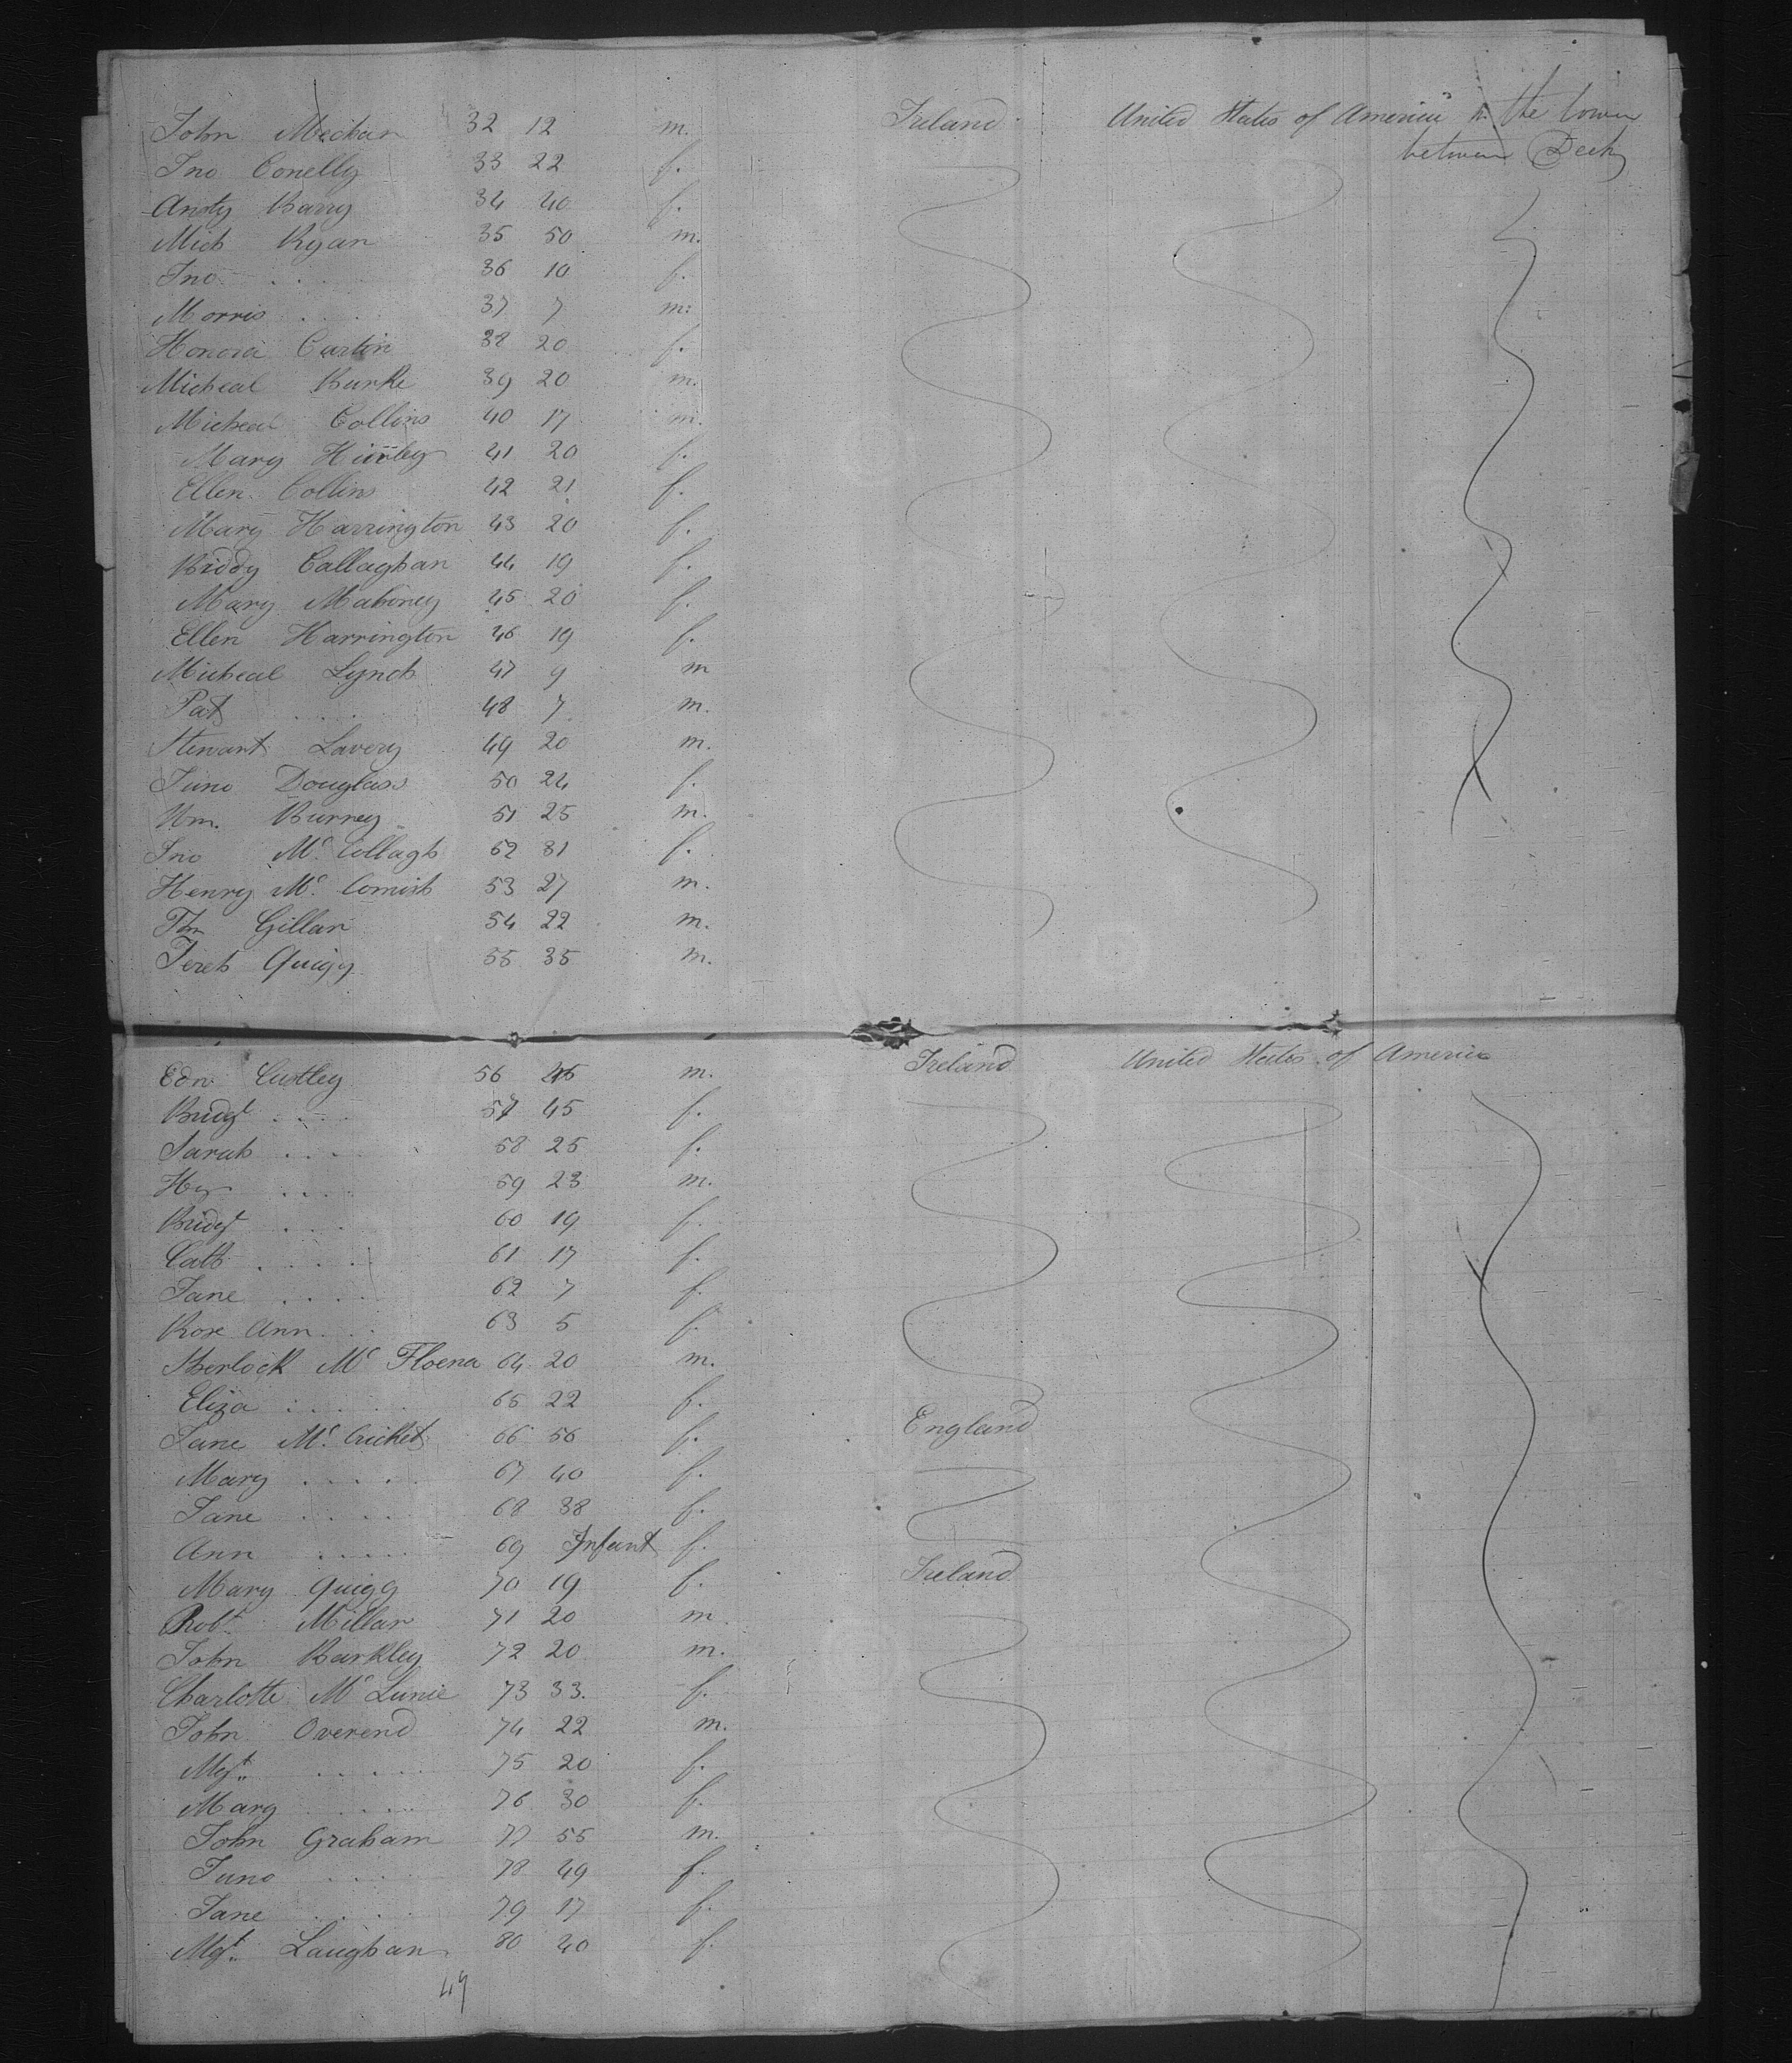 John Meehan 32 12 m. Ireland United States of America In the lower
between Decks
Jno Conelly 33 22 f.
Andy Barry 34 40 f.
Mich Ryan 35 50 m.
Jno . . . . 36 10 f.
Morris . . . . 37 7 m.
Honora Curtin 38 20 f.
Micheal Burke 39 20 m.
Micheal Collins 40 17 m.
Mary 41 20 f.
Ellen Collins 42 21 f.
Mary Harrington 43 20 f.
Biddy Callaghan 44 19 f.
Mary Mahoney 45 20 f.
Ellen Harrington 46 19 f.
Micheal Lynch 47 9 m
Pat . . . . 48 7 m.
Stewart Lavery 49 20 m.
Juno Douglass 50 24 f.
Wm. Burney 51 25 m.
Jno Mc. Collagh 52 31 f.
Henry Mc. Comish 53 27 m.
Thn Gillan 54 22 m.
Jereh Quigg 55 35 m.
Edw Custley 56 45 m. Ireland United States of America
Bridgt . . . . 57 45 f.
Sarah . . . . 58 25 f.
Hy . . . . 59 23 m.
Bridgt . . . . 60 19 f.
Cath . . . . . 61 17 f.
Jane . . . . 62 7 f.
Rose Ann . . . 63 5 f.
Sherlock Mc 64 20 m.
Eliza . . . . . 65 22 f.
Jane Mc. Cricket 66 56 f. England
Mary . . . . . 67 40 f.
Jane . . . . . 68 38 f.
Ann . . . . . 69 Infant f.
Mary Quigg 70 19 f. Ireland
Robt. Millar 71 20 m.
John Barkley 72 20 m.
Charlotte Mc Lunie 73 33. f.
John Overend 74 22 m.
Mgt. . . . . . 75 20 f.
Mary . . . . 76 30 f.
John Graham 77 55 m.
Juno . . . . 78 49 f.
Jane . . . . 79 17 f.
Mgt. Laughan 80 40 f.
49